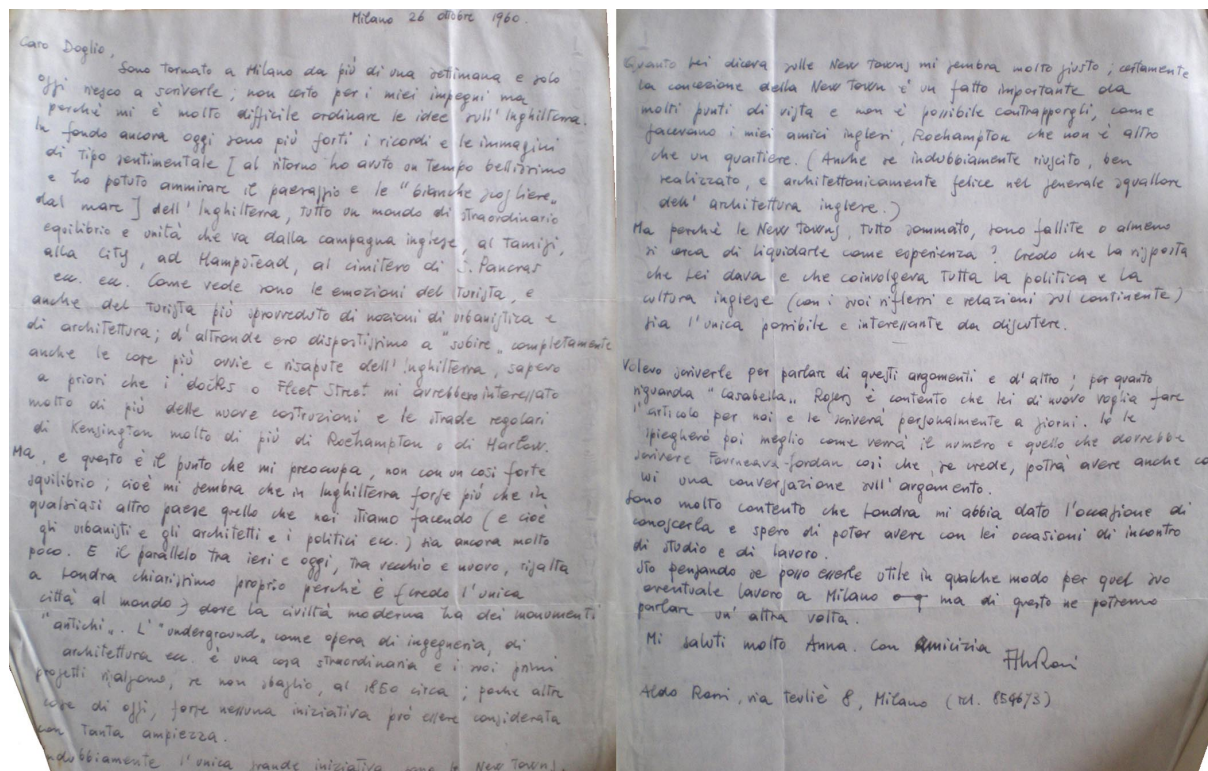 Milano 26 ottobre 1960.
Caro Doglio,
Sono tornato a Milano da più di una settimana e solo
oggi riesco a scriverle; non certo per i miei impegni ma
perchè mi è molto difficile ordinare le idee sull'Inghilterra.
In fondo ancora oggi sono più forti i ricordi e le immagini
di tipo sentimentale [al ritorno ho avuto un tempo bellissimo
e ho potuto ammirare il paesaggio e le "bianche scogliere"
dal mare] dell'Inghilterra, tutto un mondo di straordinario
equilibrio e unità che va dalla campagna inglese, al Tamigi,
alla City, ad Hampstead, al cimitero di S. Pancras
ecc. ecc. Come vede sono le emozioni del turista, e
anche del turista più sprovveduto di nozioni di urbanistica e
di architettura; d'altronde ero dispostissimo a "subire" completamente
anche le cose più ovvie e risapute dell'Inghilterra, sapevo
a priori che i docks o Fleet Street mi avrebbero interessato
molto di più delle nuove costruzioni e le strade regolari
di Kensington molto di più di Roehampton o di Harlow.
Ma, e questo è il punto che mi preoccupa, non con un così forte
squilibrio; cioè mi sembra che in Inghilterra forse più che in
qualsiasi altro paese quello che noi stiamo facendo (e cioè
gli urbanisti e gli architetti e i politici ecc.) sia ancora molto
poco. E il parallelo tra ieri e oggi, tra vecchio e nuovo, risalta
a Londra chiarissimo proprio perchè è (credo l'unica
città al mondo) dove la civiltà moderna ha dei monumenti
"antichi". L'"underground" come opera di ingegneria, di
architettura ecc. è una cosa straordinaria e i suoi primi
progetti risalgono, se non sbaglio, al 1850 circa; poche altre
cose di oggi, forse nessuna iniziativa può essere considerata
con tanta ampiezza.
Indubbiamente l'unica grande iniziativa sono le New Towns.
Quanto Lei diceva sulle New Towns mi sembra molto giusto; certamente
la concezione della New Town è un fatto importante da
molti punti di vista e non è possibile contrapporgli, come
facevano i miei amici inglesi, Roehampton che non è altro
che un quartiere. (Anche se indubbiamente riuscito, ben
realizzato, e architettonicamente felice nel generale squallore
dell'architettura inglese.)
Ma perchè le New Towns, tutto sommato, sono fallite o almeno
si cerca di liquidarle come esperienza? Credo che la risposta
che Lei dava e che coinvolgeva tutta la politica e la
cultura inglese (con i suoi riflessi e relazioni sul continente)
sia l'unica possibile e interessante da discutere.
Volevo scriverle per parlare di questi argomenti e d'altro; per quanto
riguarda "Casabella" Rogers è contento che lei di nuovo voglia fare
l'articolo per noi e le scriverà personalmente a giorni. Io le
spiegherò poi meglio come verrà il numero e quello che dovrebbe
scrivere Furneaux-Jordan così che, se crede, potrà avere anche con
lui una conversazione sull'argomento.
Sono molto contento che Londra mi abbia dato l'occasione di
conoscerla e spero di poter avere con lei occasioni di incontro
di studio e di lavoro.
Sto pensando se posso esserle utile in qualche modo per quel suo
eventuale lavoro a Milano ma di questo ne potremo
parlare un'altra volta.
Mi saluti molto Anna. Con amicizia
Aldo Rossi
Aldo Rossi, via Teuliè 8, Milano (tel. 854673)